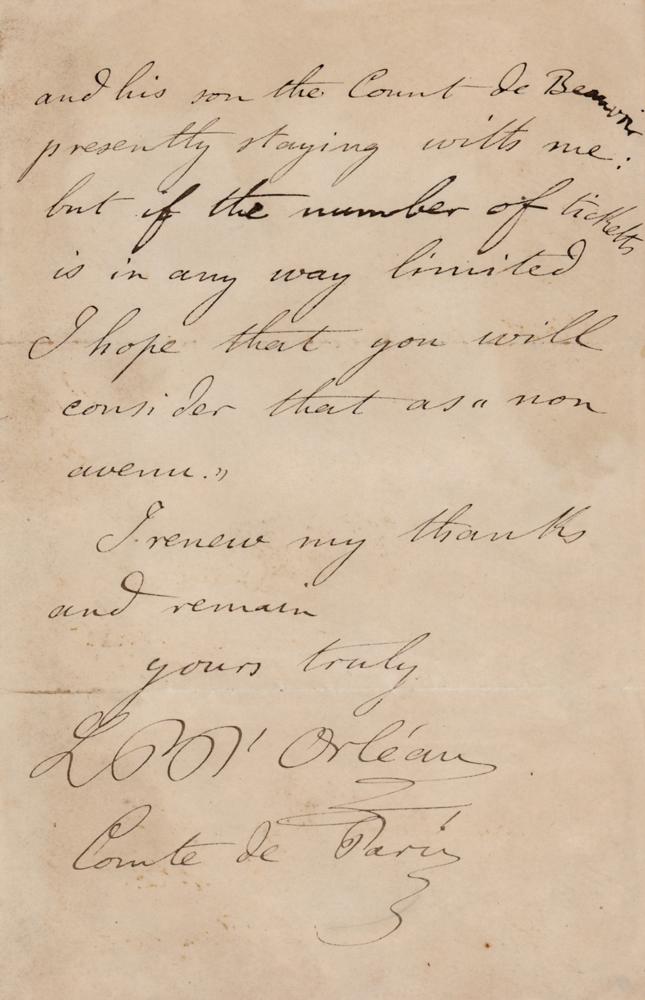 and his son the Count de Beauvoir
presently staying with me:
but if the number of tickets
is in any way limited
I hope that you will
consider that as « non
avenu. »
I renew my thanks
and remain
yours truly
L P d'Orléans
Comte de Paris